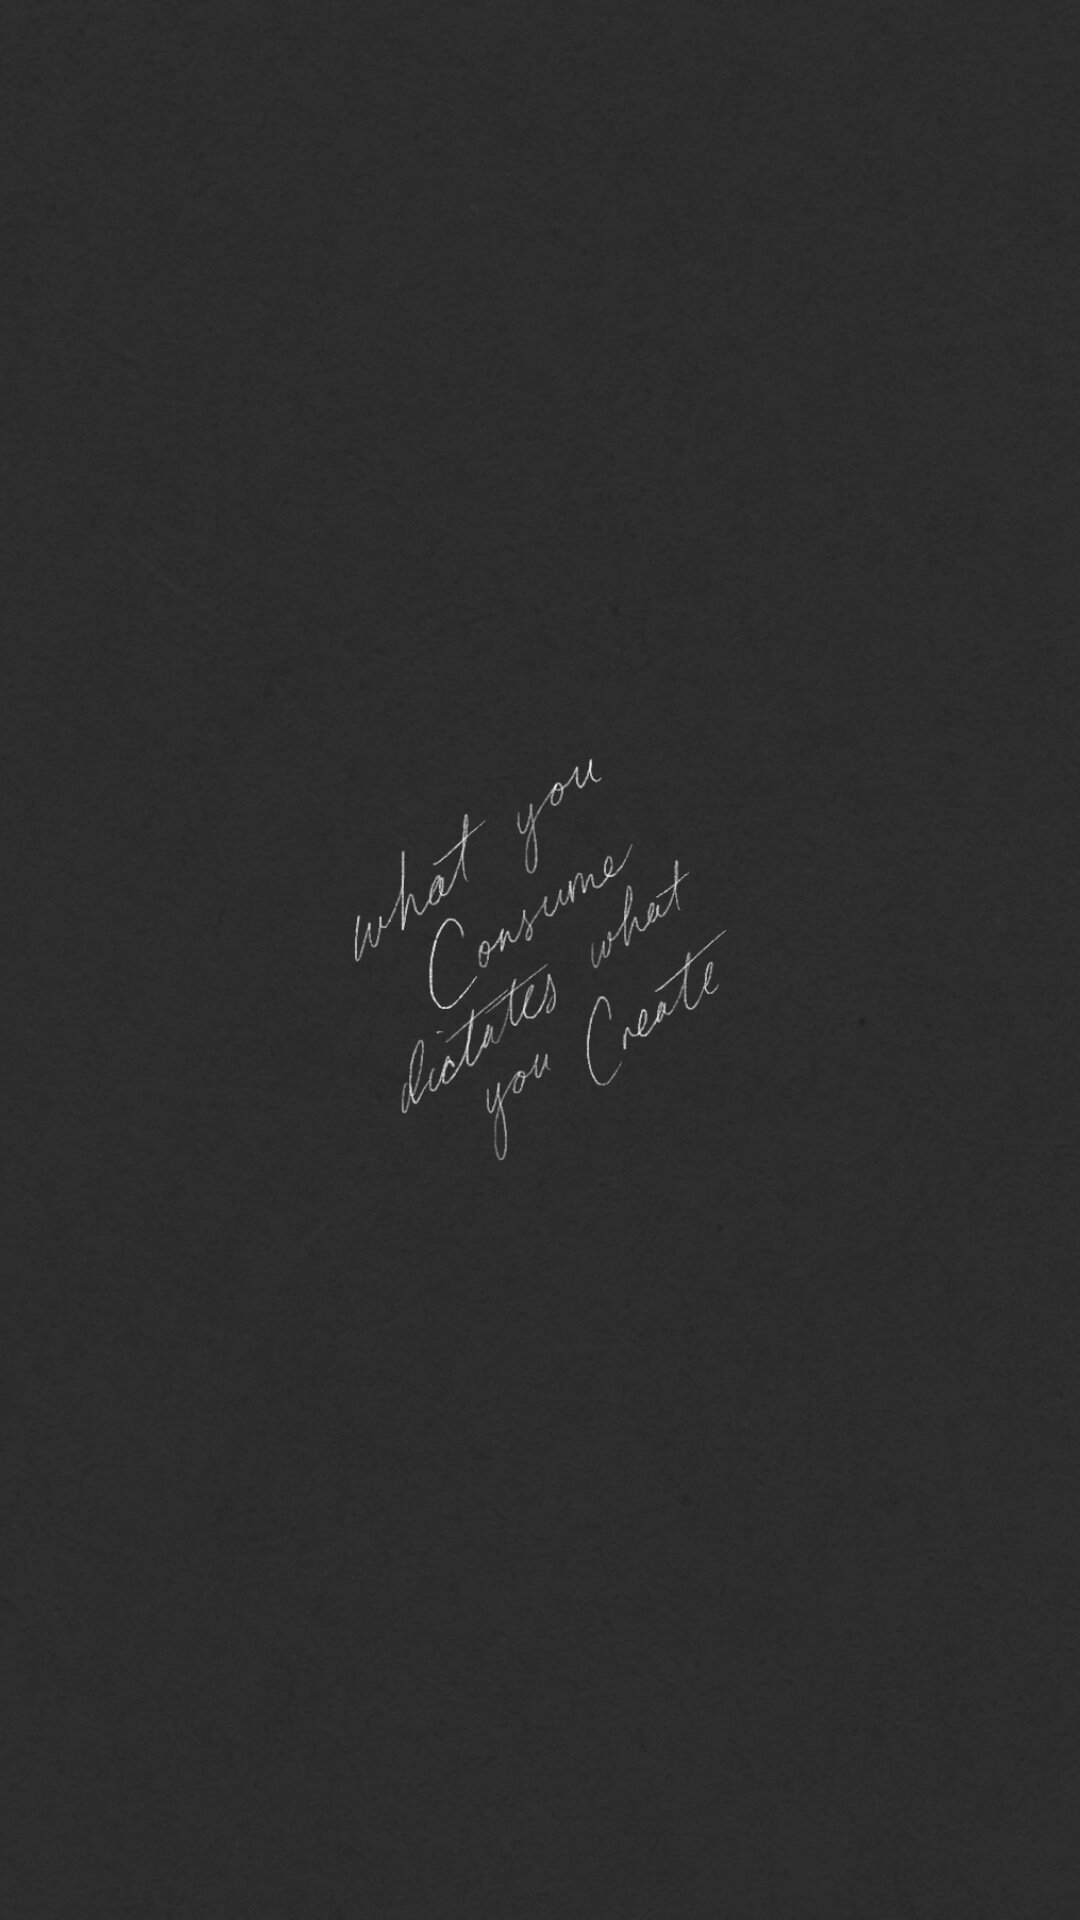 what you
Consume
dictates what
you Create